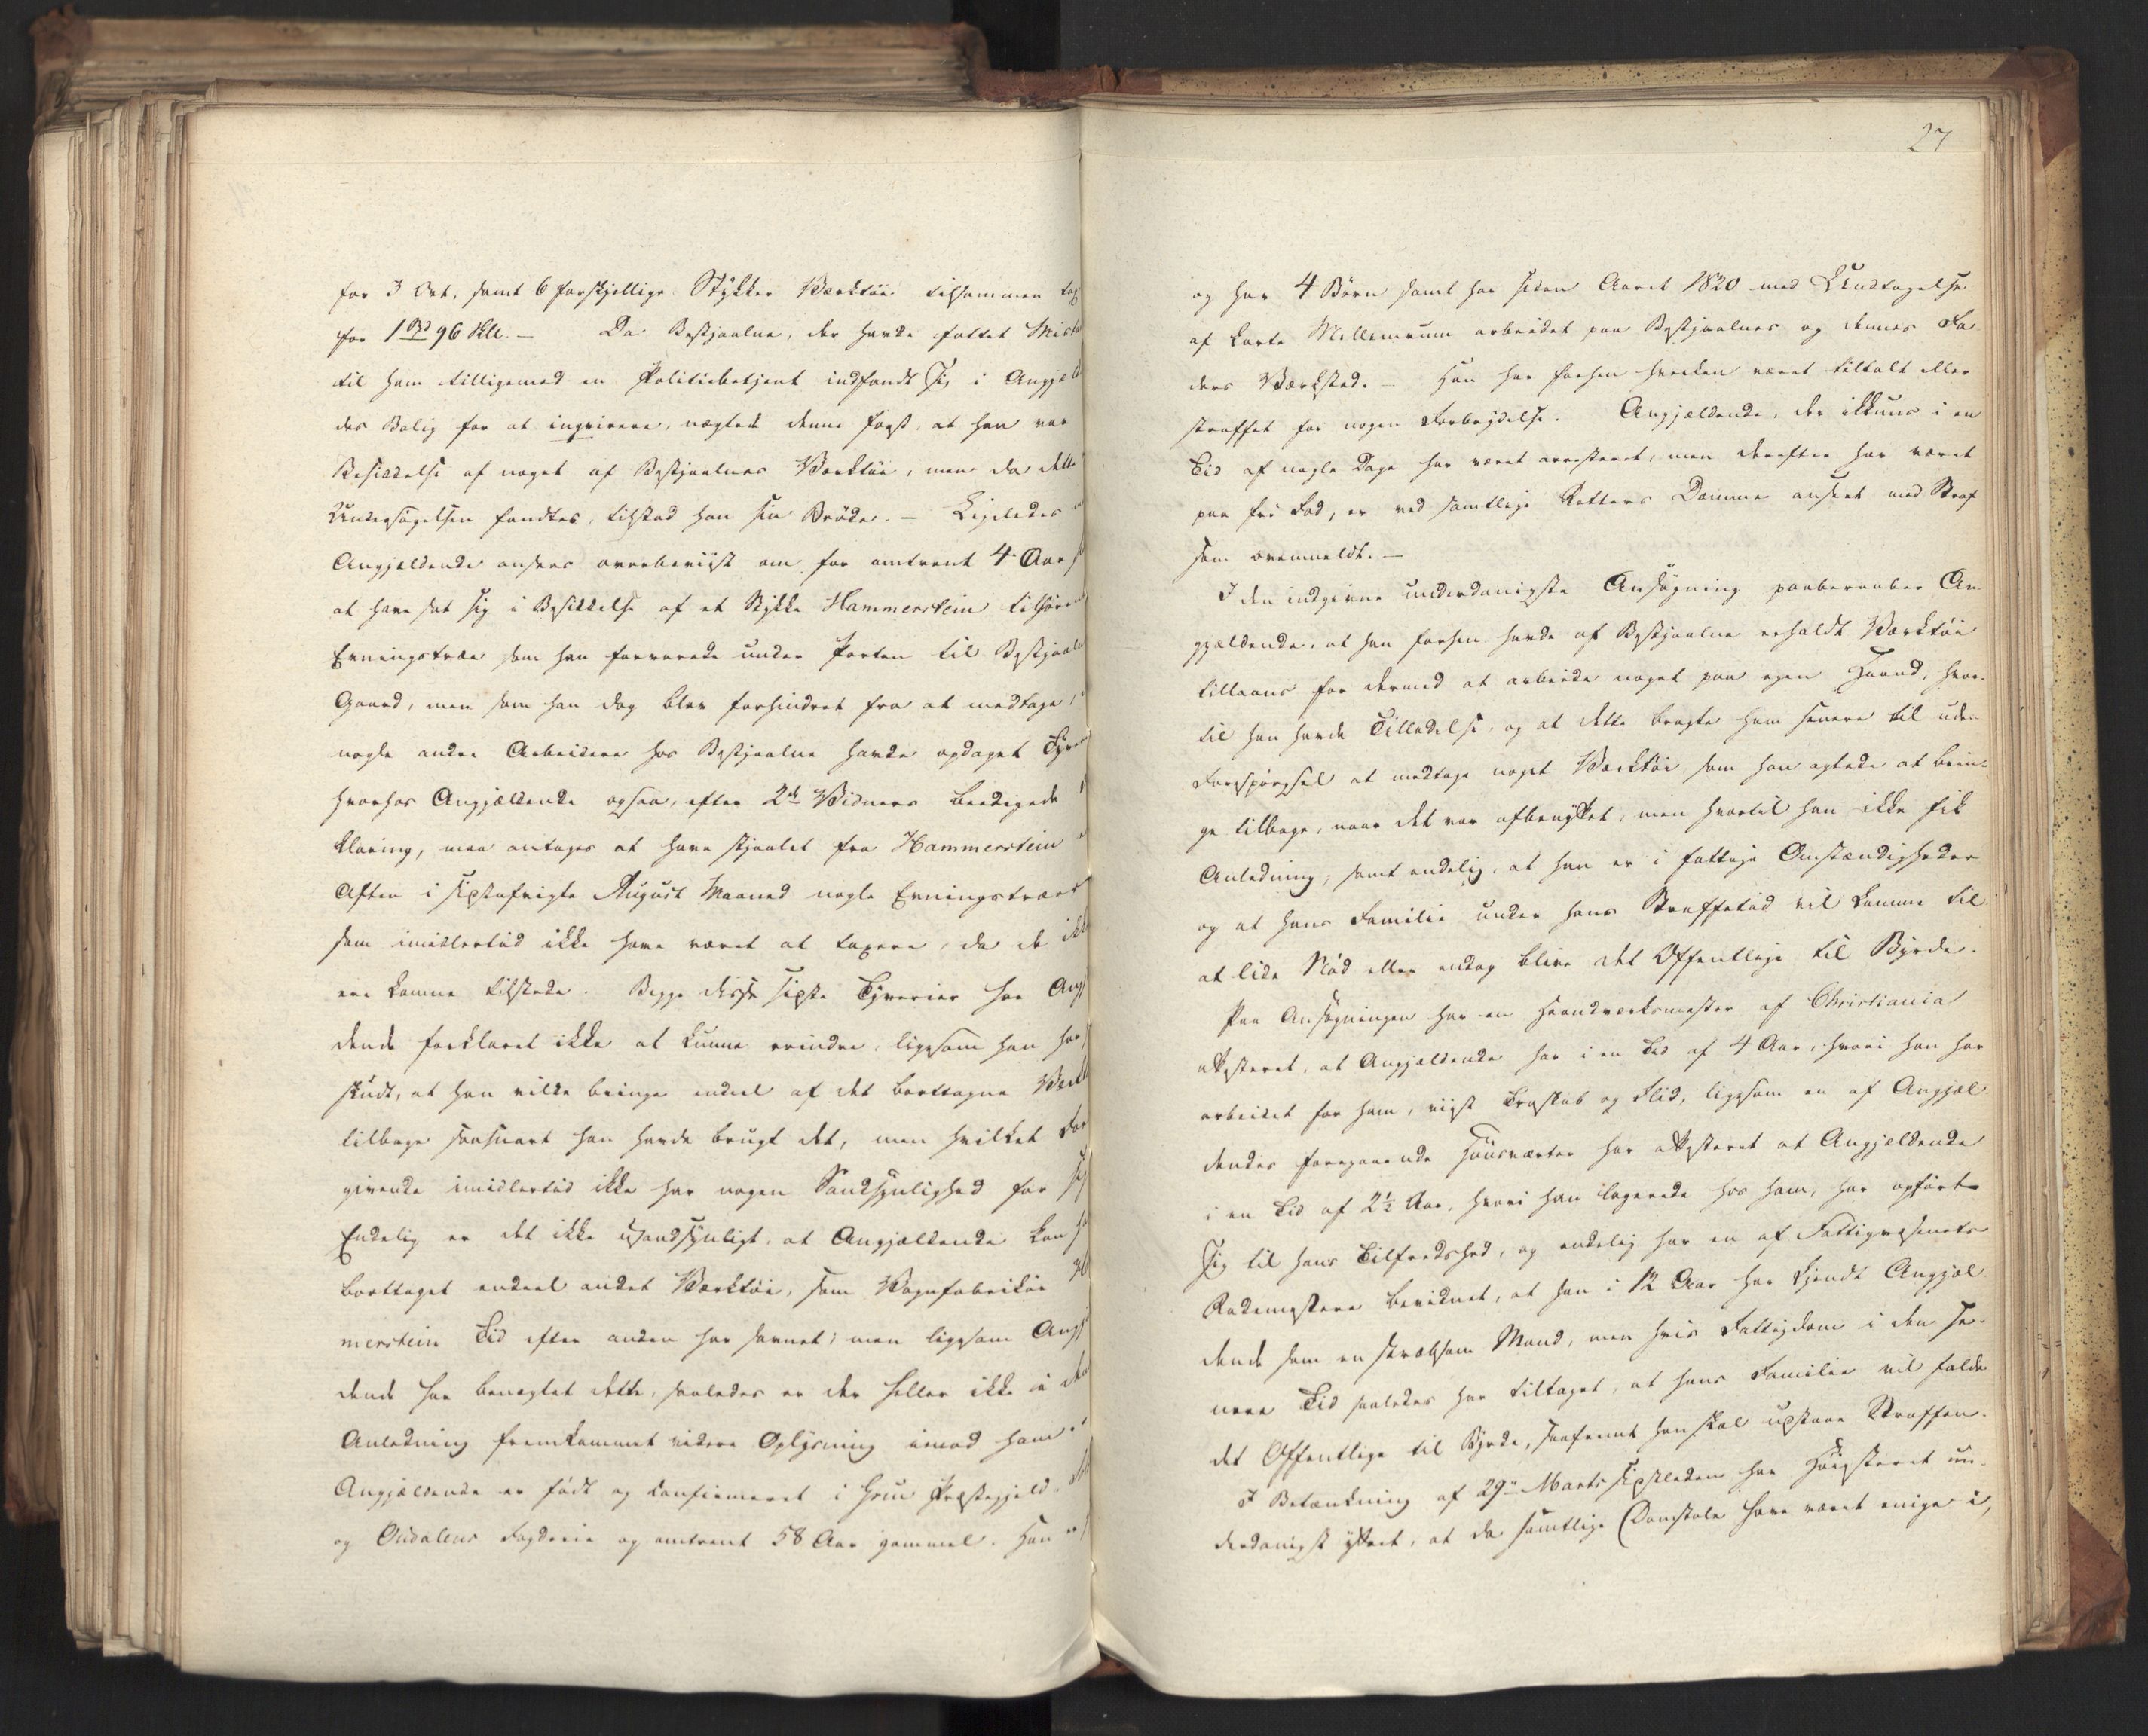 for 3 Ort, samt 6 forskjellige Stykker Værktøi tilsammen tax
for 1 Spd 96 Skll. – Da Bestjaalne, der havde fattet Mistan
til ham tilligemed en Politiebetjent indfandt sig i Angjæl
des Bolig for at inqvirere, nægtede denne først, at han var
Besiddelse af noget af Bestjaalnes Værktøi, men da dette
Undersøgelsen fandtes, tilstod han sin Brøde. – Ligeledes
Angjeldende ansees overbeviist om for omtrent 4 Aar
at have sat sig i Besiddelse af et Stykke Hammerstein tilhørende
Eeningstræe som han forvarede under Porten til Bestjaalnes
Gaard, men som han dog blev forhindret fra at medtage,
nogle andre Arbeidere hos Bestjaalne havde opdaget Tyve
hvorhos Angjældende ogsaa, efter 2de Vidners beedigede
klaring, maa antages at have stjaalet fra Hammerstein
Aften i sidstafvigte August Maaned nogle Eeningstræer
som imidlertid ikke have været at taxere, da de ikke
ere komne tilstede. Begge disse sidste Tyverier har Angj
dende forklaret ikke at kunne erindre, ligesom han har
skudt, at han vilde bringe endeel af det borttagne Værk
tilbage saasnart han havde brugt det, men hvilket For
givende imidlertid ikke har nogen Sandsynlighed for sig
Endelig er det ikke usandsynligt, at Angjældende kan ha
borttaget endeel andet Værktøi, som Vognfabrikør Ha
merstein Tid efter anden har savnet; men ligesom Angj
dende har benægtet dette, saaledes er der heller ikke i den
Anledning fremkommet videre Oplysning imod ham.
Angjældende er født og confirmeret i Grue Præstegjeld
og Oudalens Fogderie og omtrent 58 Aar gammel. Han er
27
og har 4 Børn samt har siden Aaret 1820 med Undtagelse
af korte Mellemrum arbeidet paa Bestjaalnes og dennes Fa
ders Værksted. – Han har forhen hverken været tiltalt eller
straffet for nogen Forbrydelse. Angjældende, der ikkuns i en
Tid af nogle Dage har været arresteret, men derefter har været
paa fri Fod, er ved samtlige Retters Domme anseet med Straf
som ovenmeldt. –
I den indgivne underdanigste Ansøgning paaberaaber An
gjældende, at han forhen havde af Bestjaalne erholdt Værktøi
tillaans for dermed at arbeide noget paa egen Haand, hvor-
til han havde Tilladelse, og at dette bragte ham senere til uden
Forespørgsel at medtage noget Værktøi som han agtede at brin-
ge tilbage, naar det var afbenyttet, men hvortil han ikke fik
Anledning, samt endelig, at han er i fattige Omstændigheder
og at hans Familie under hans Straffetid vil komme til
at lide Nød eller endog blive det Offentlige til Byrde.
Paa Ansøgningen har en Haandværksmester af Christiania
attesteret, at Angjældende har i en Tid af 4 Aar, hvori han har
arbeidet for ham, viist Troskab og Flid, ligesom en af Angjæl
dendes foregaaende Huusverter har attesteret at Angjældende
i en Tid af 2½ Aar, hvori han logerede hos ham, har opført
sig til hans Tilfredshed, og endelig har en af Fattigvæsenets
Rodemestere bevidnet, at han i 12 Aar har kjendt Angjæl
dende som en stræbsom Mand, men hvis Fattigdom i den se-
nere Tid saaledes har tiltaget, at hans Familie vil falde
det Offentlige til Byrde, saafremt han skal udstaae Straffen.
I Betænkning af 29de Marts sidstleden har Høiesteret un-
derdanigst yttret, at da samtlige Domstole have været enige i,